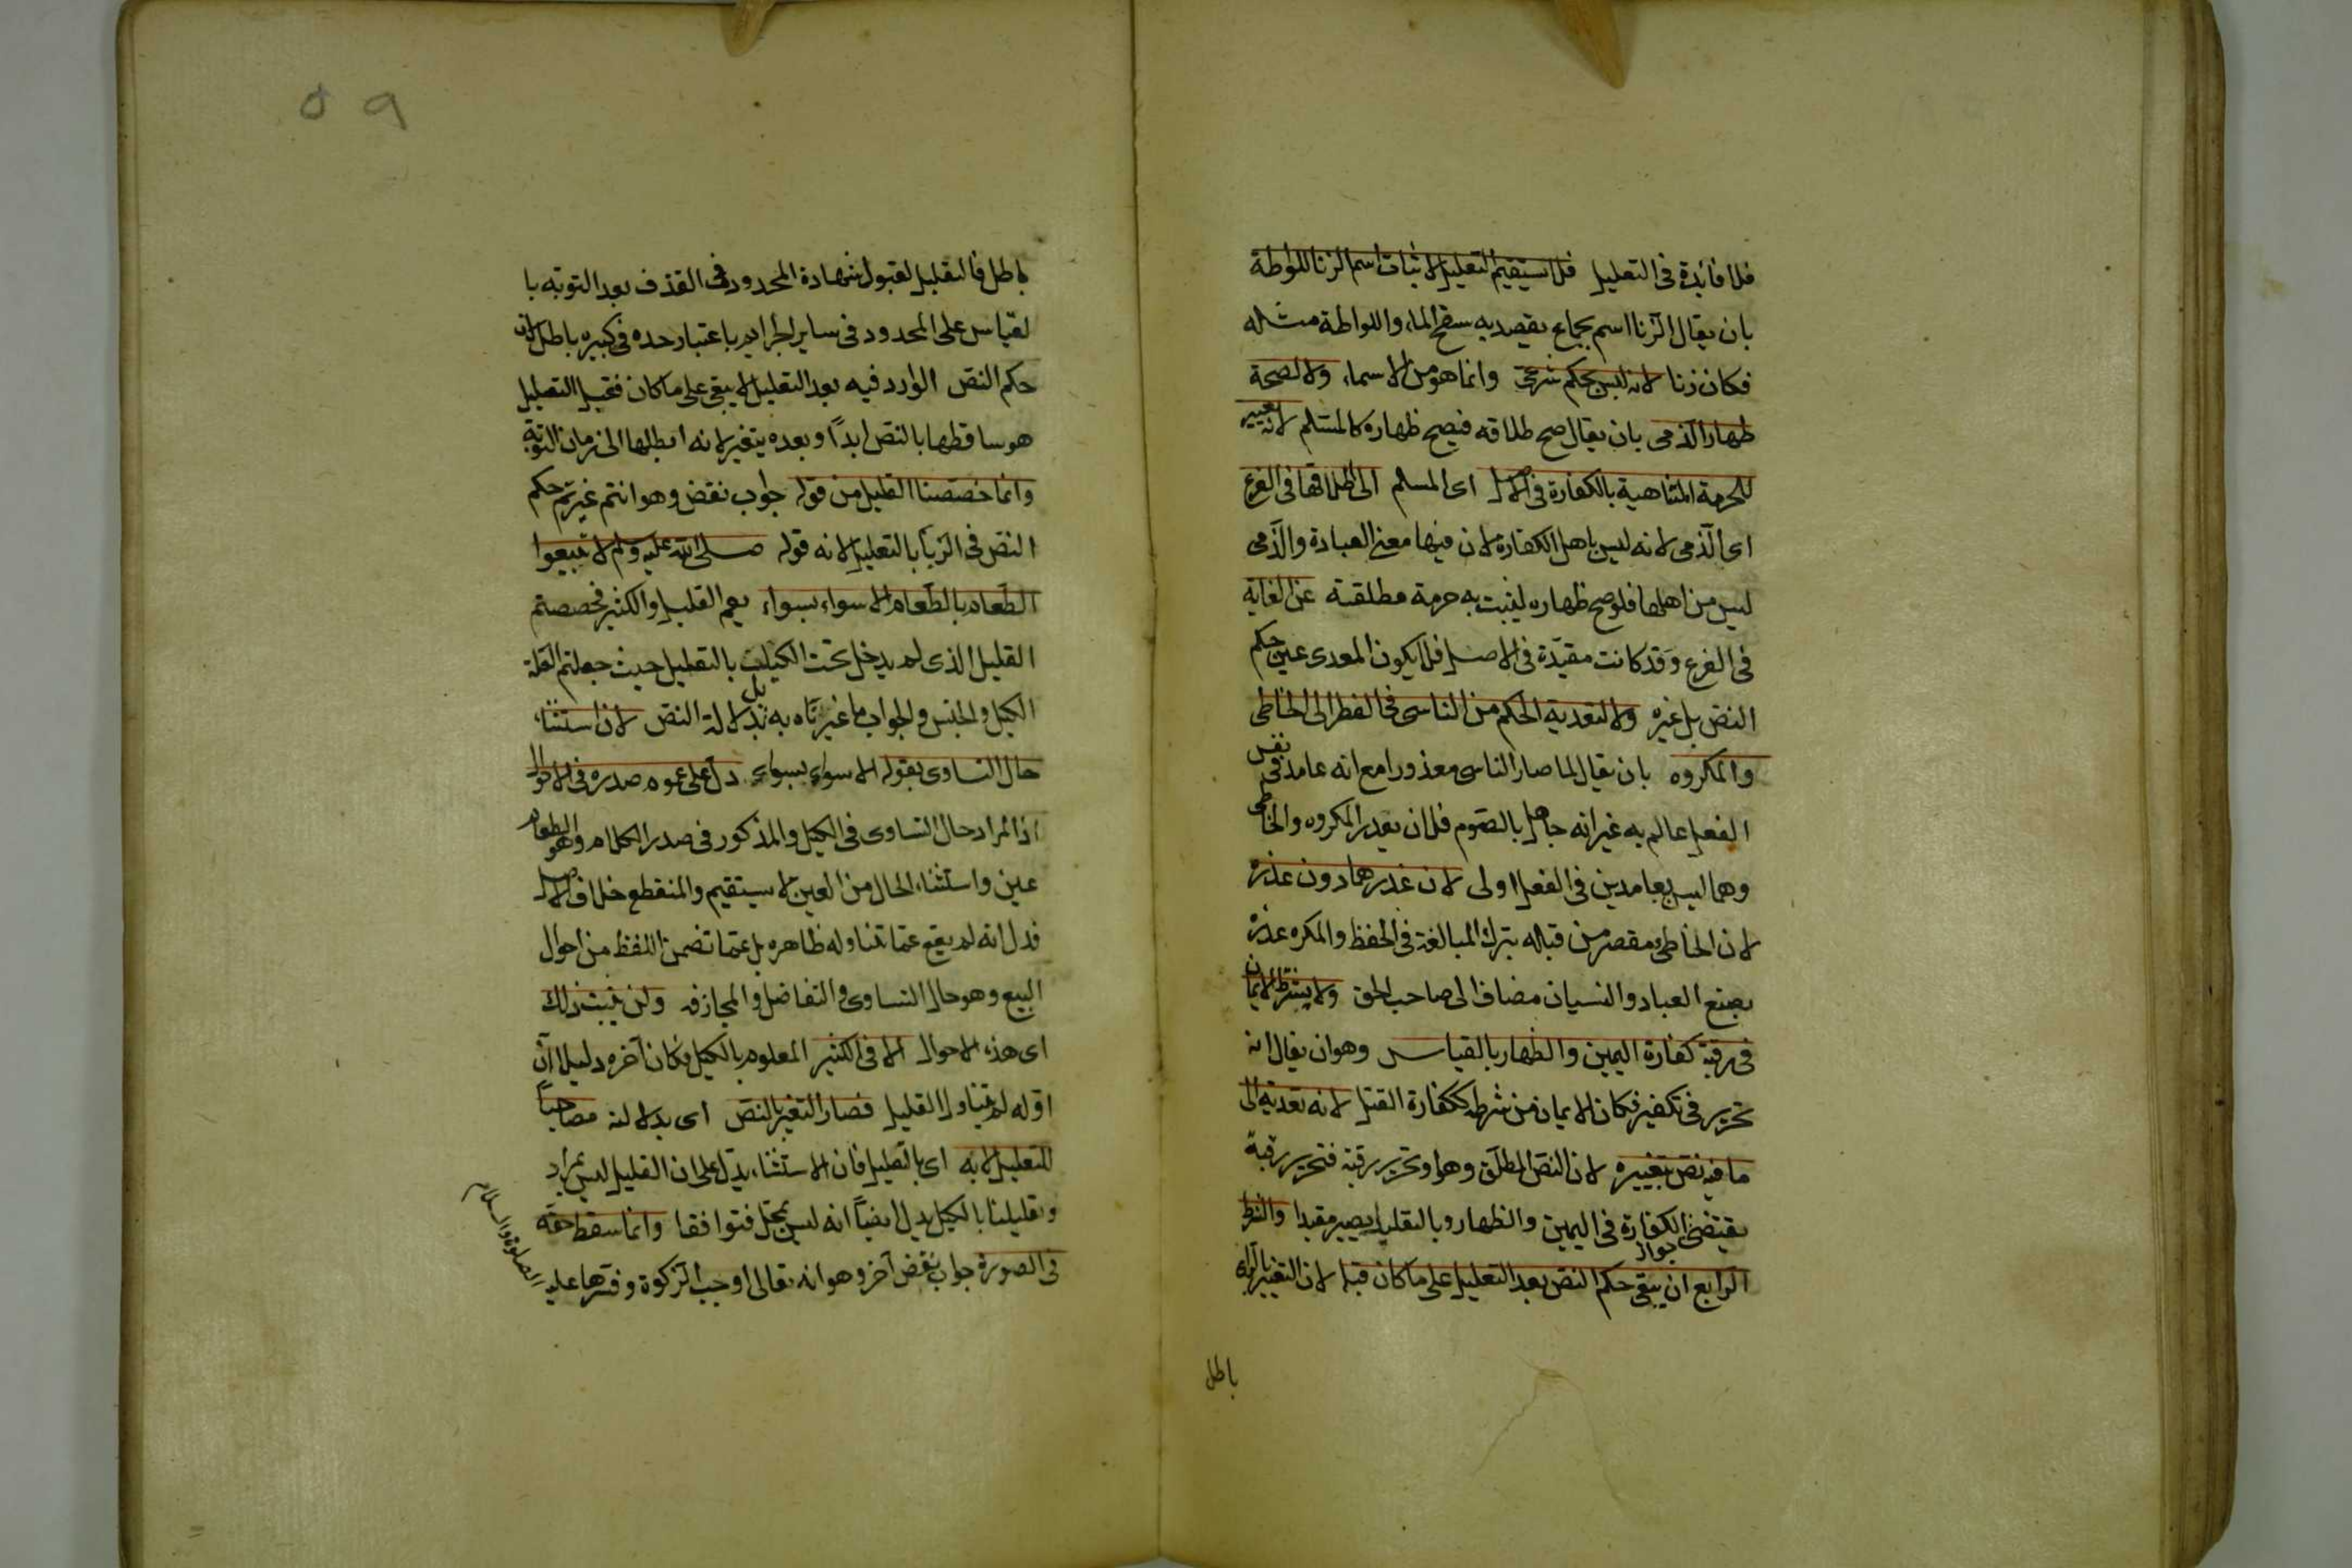 فلا فائدة فى التعليل فلا يستقيم التعليل لاثبات اسم الزنا للواطة
بان يقال الزنا اسم بجماع يقصد به سفح الماء واللواطة مثله
فكان زنا لانه ليس بحكم شرعى وانما هو من الاسماء ولا لصحة
ظهار الذمى بان يقال صح طلاقه فيصح ظهاره كالمسلم لانه تغيير
للحرمة المتناهية بالكفارة فى الاصل اى المسلم الى اطلاقها فى الفرع
اى الذمى لانه ليس باهل الكفارة لان فيها معنى العبادة والذمى
ليس من اهلها فلو صح ظهاره ليثبت به حرمة مطلقة عن الغاية
فى الفرع وقد كانت مقيدة فى الاصل فلا يكون المعدى عين حكم
النص بل غيره ولا لتعدية الحكم من الناسى فى الفطر الى الخاطى
والمكروه بان يقال لما صار الناسى معذورا مع انه عامد فى نفس
الفعل عالم به غير انه جاهل بالصوم فلان يعذر المكروه والخاطى
وهما ليس بعامدين فى الفعل اولى لان عذرهما دون عذره
لان الخاطى مقصر من قبله بترك المبالغة فى الحفظ والمكره عذره
بصنع العباد والنسيان مضاف الى صاحب الحق ولا يشترط الايمان
فى رقبة كفارة اليمين والظهار بالقياس وهو ان يقال انه
تحرير فى تكفير فكان الايمان من شرطه ككفارة القتل لانه تعدية الى
ما فيه نص بتغييره لان النص المطلق وهو او تحرير رقبة فتحرير رقبة
يقتضى جواز الكفارة فى اليمين والظهار وبالتعليل يصير مقيدا والشرط
الرابع ان يبقى حكم النص بعد التعليل على ما كان قبله لان التغيير بالراى
باطل
٥٩
باطل فالتعليل لقبول شهادة المحدود فى القذف بعد التوبة با
لقياس على المحدود فى ساير الجرايم باعتبار حده فى كبيره باطل لان
حكم النص الوارد فيه بعد التعليل لا يبقى على ما كان فقبل التعليل
هو ساقطها بالنص ابدًا وبعده يتغير لانه ابطلها الى زمان التوبة
وانما خصصنا القليل من قوله جواب نقض وهو انتم غيرتم حكم
النص فى الربا بالتعليل لانه قوله صلى الله عليه وسلم لا تبيعوا
الطعام بالطعام الا سواء بسواء يعم القليل والكثير فخصصتم
القليل الذى لم يدخل تحت الكيل بالتعليل حيث جعلتم العلة
الكيل والجنس والجواب ما غيرناه به بل بدلالة النص لان استثناء
حال التساوى بقوله الا سواء بسواء دل على عموم صدره فى الاحوال
اذ المراد حال التساوى فى الكيل والمذكور فى صدر الكلام وهو الطعام
عين واستثناء الحال من العين لا يستقيم والمنقطع خلاف الاصل
فدل انه لم يقع عما تناوله ظاهره بل عما تضمن اللفظ من احوال
البيع وهو حال التساوى والتفاضل والمجازفه ولن يثبت ذلك
اى هذه الاحوال الا فى الكثير المعلوم بالكيل فكان آخره دليلا ان
اوله لم يتناول القليل فصار التغير بالنص اى بدلالته مصاحبًا
للتعليل لا به اى بالتعليل فان الاستثناء يدل على ان القليل ليس بمراد
وتعليلنا بالكيل يدل ايضًا انه ليس بمحل فتوافقا وانما سقط حقه
فى الصورة جواب نقض آخر وهو انه تعالى اوجب الزكوة وفسرها عليه
الصلوة والسلام